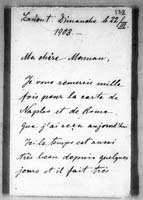 Dimanche le 22
1903.
Ma chère Maman,
Je vous remercie mille
fois pour la carte de
Naples et de Rome
que j'ai reçu aujourd'hui
Ici le temps est aussi
très beau depuis quelques
jours et il fait très